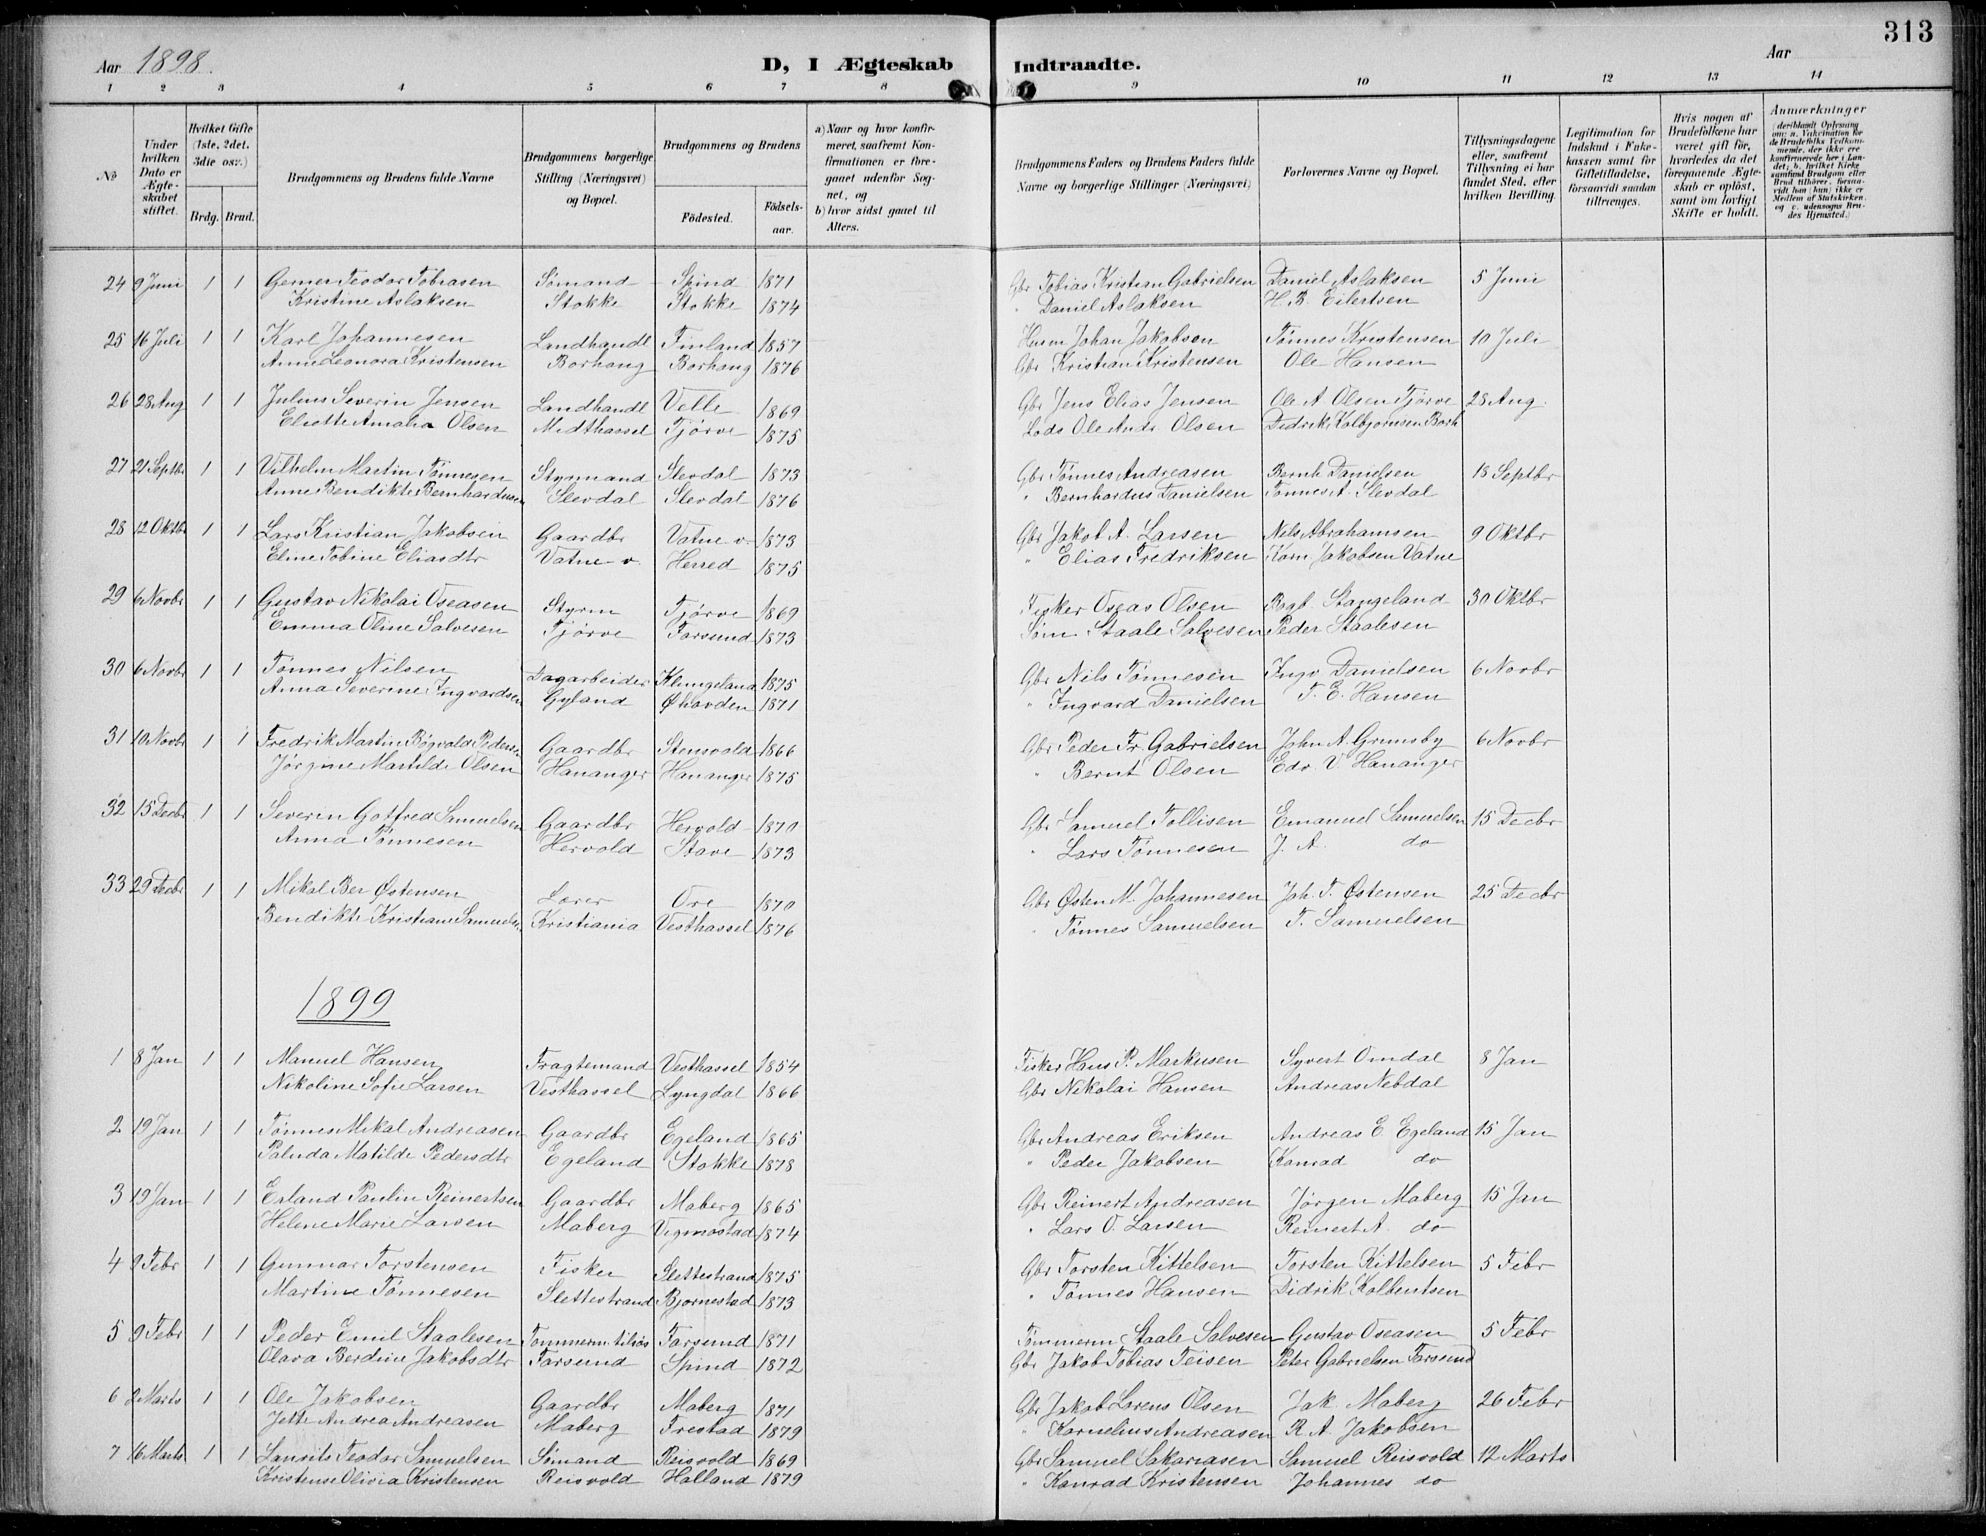 313
Aar 1898.
D, I Ægteskab Indtraadte.
Aar
1 2 3 4 5 6 7 8 9 10 11 12 13 14
No
Under hvilken Dato er Ægteskabet stiftet.
Hvilket Gifte (1ste, 2det, 3die osv.)
Brdg. Brud.
Brudgommens og Brudens fulde Navne
Brudgommens borgerlige Stilling (Næringsvei) og Bopæl.
Brudgommens og Brudens
Födested. Födselsaar.
a) Naar og hvor konfirmeret, saafremt Konfirmationen er foregaaet udenfor Sognet, og
b) hvor sidst gaaet til Alters.
Brudgommens Faders og Brudens Faders fulde Navne og borgerlige Stillinger (Næringsvei)
Forlovernes Navne og Bopæl.
Tillysningsdagene eller, saafremt Tillysning ei har fundet Sted, efter hvilken Bevilling.
Legitimation for Indskud i Enkekassen samt for Giftetilladelse, forsaavidt saadan tiltrænges.
Hvis nogen af Brudefolkene har været gift før, hvorledes da det foregaaende Ægteskab er oplöst, samt om lovligt Skifte er holdt.
Anmærkninger (deriblandt Oplysning om: a. Vakcination for de Brudefolks Vedkommende, der ikke ere konfirmerede her i Landet; b. hvilket Kirkesamfund Brudgom eller Brud tilhörer, forsaavidt han (hun) ikke er Medlem af Statskirken, og c. udensogns Brudes Hjemsted.)
24 9 Juni 1 1 Gerner Teodor Tobiasen Sömand Spind 1871 Gbr Tobias Kristian Gabrielsen Daniel Aslaksen 5 Juni
Kristine Aslaksen Stokke Stokke 1874 " Daniel Aslaksen H. B. Eilertsen
25 16 Juli 1 1 Karl Johannesen Landhandl Finland 1857 Husm Johan Jakobsen Tønnes Kristensen 10 Juli
Anne Leonora Kristensen Borhaug Borhaug 1876 Gbr Kristian Kristensen Ole Hansen
26 28 Aug 1 1 Julius Severin Jensen Landhandl Velle 1869 Gbr Jens Elias Jensen Ole A Olsen Tjörve 28 Aug.
Eliotte Amalia Olsen Midthassel Tjörve 1875 Lods Ole Andr. Olsen Didrik Kolbjørnsen Borh
27 21 Septbr 1 1 Vilhelm Martin Tönnesen Styrmand Slevdal 1873 Gbr Tønnes Andreasen Bernh Danielsen 18 Septbr
Anne Bendikte Bernhardusen Slevdal Slevdal 1876 " Bernhardus Danielsen Tönnes A. Slevdal
28 12 Oktbr 1 1 Lars Kristian Jakobsen Gaardbr Vatne v. 1873 Gbr Jakob A. Larsen Nils Abrahamsen 9 Oktbr
Eline Tobine Eliasdtr Vatne v. Herred 1875 " Elias Fredriksen Korn. Jakobsen Vatne
29 6 Novbr 1 1 Gustav Nikolai Oseasen Styrm Tjörve 1869 Fisker Oseas Olsen Stangeland 30 Oktbr
Emma Oline Salvesen Tjörve Farsund 1873 Töm Staale Salvesen Peder Staalesen
30 6 Novbr 1 1 Tønnes Nilsen Dagarbeider Klungeland 1875 Gbr Nils Tönnesen Ingv. Danielsen 6 Novbr
Anna Severine Ingvardsen Gyland Øhavden 1871 " Ingvard Danielsen T. E. Hansen
31 10 Novbr 1 1 Fredrik Martin Rögvold Pedersen Gaardbr Stensvold 1866 Gbr Peder Fr. Gabrielsen John A. Grimsby 6 Novbr
Jörgine Matilde Olsen Hananger Hananger 1875 " Bernt Olsen Edv. V Hananger
32 15 Decbr 1 1 Severin Gotfred Samuelsen Gaardbr Hervold 1870 Gbr Samuel Tollisen Emanuel Samuelsen 15 Decbr
Anna Tönnesen Hervold Stave 1873 " Lars Tönnesen J. A. do
33 29 Decbr 1 1 Mikal Ber Östensen Lærer Ore 1870 Gbr Østen M. Johannesen Joh. T. Östensen 25 Decbr
Bendikte Kristiane Samuels. Kristiania Vesthassel 1876 " Tønnes Samuelsen T. Samuelsen
1899
1 8 Jan 1 1 Manuel Hansen Fragtemand Vesthassel 1854 Fisker Hans P. Markusen Syvert Omdal 8 Jan
Nikoline Sofie Larsen Vesthassel Lyngdal 1866 Gbr Nikolai Hansen Andreas Nebdal
2 19 Jan 1 1 Tønnes Mikal Andreasen Gaardbr Egeland 1865 Gbr Andreas Eriksen Andreas E. Egeland 15 Jan
Palnda Matilde Pedersdtr Egeland Stokke 1878 " Peder Jakobsen Konrad do
3 19 Jan 1 1 Erland Paulin Reinertsen Gaardbr Maberg 1865 Gbr Reinert Andreasen Jørgen Maberg 15 Jan
Helene Marie Larsen Maberg Vigmostad 1874 " Lars O. Larsen Reinert A. do
4 9 Febr 1 1 Gunnar Torstensen Fisker Slettestrand 1875 Gbr Torsten Kittelsen Torsten Kittelsen 5 Febr
Martine Tønnesen Slettestrand Bjørnestad 1873 " Tønnes Hansen Didrik Kolbentsen
5 9 Febr 1 1 Peder Emil Staalesen Tømmerm. Farsund 1871 Tømmerm Staale Salvesen Gustav Oseasen 5 Febr
Olava Berdine Jakobsdtr Farsund Spind 1872 Gbr Jakob Tobias Teisen Peter Gabrielsen Farsund
6 2 Marts 1 1 Ole Jakobsen Gaardbr Maberg 1871 Gbr Jakob Lorens Olsen Jak. Maberg 26 Febr
Jette Andrea Andreasen Maberg Frestad 1879 " Kornelius Andreasen R. A. Jakobsen
7 16 Marts 1 1 Laurits Teodor Samuelsen Sömand Reisvold 1869 Gbr Samuel Sakariasen Samuel Reisvold 12 Marts
Kristense Olivia Kristensen Reisvold Halland 1879 " Konrad Kristensen Johannes do